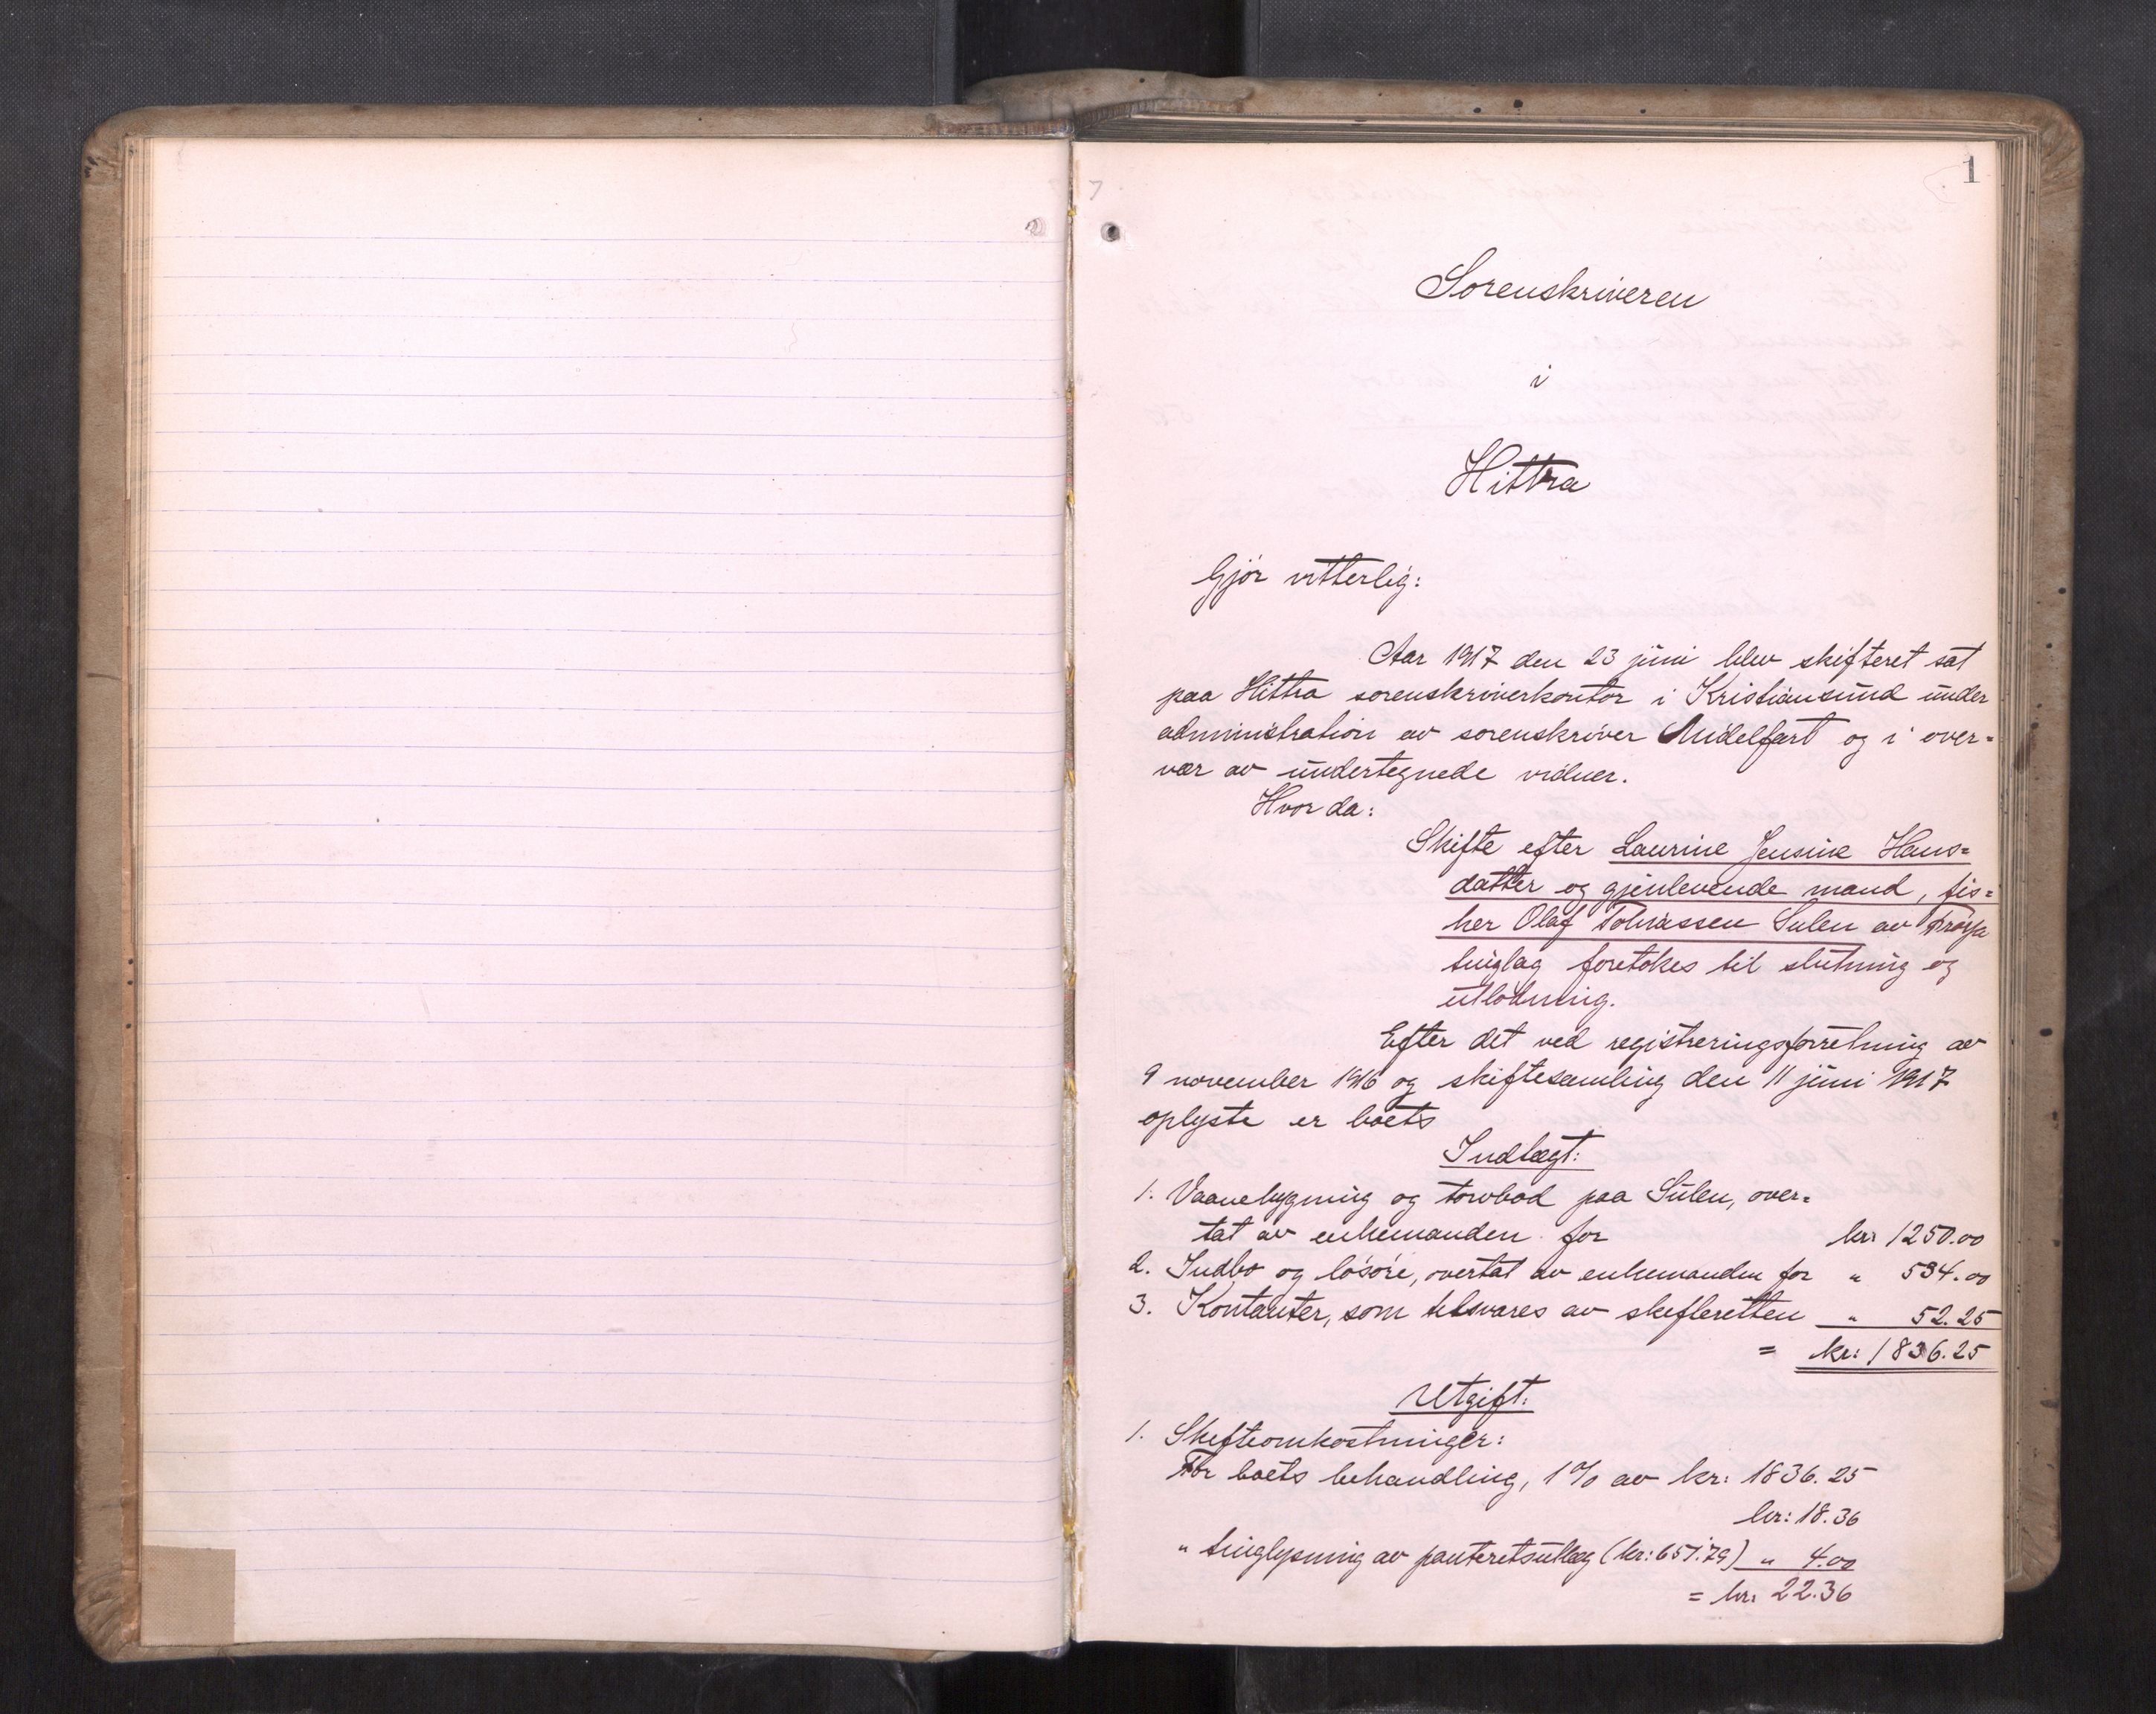 1
Sorenskriveren
i
Hittra
Gjør vitterlig:
Aar 1917 den 23 juni blev skifteret sat
paa Hittra sorenskriverkontor i Kristiansund under
administration av sorenskriver Midelfart og i over=
vær av undertegnede vidner.
Hvor da:
Skifte efter Laurine Jensine Hans=
datter og gjenlevende mand, fis=
ker Olaf Tobiassen Sulen av Frøya
tinglag foretokes til slutning og
utlodning.
Efter det ved registreringsforretning av
9 november 1916 og skiftesamling den 11 juni 1917
oplyste er boets
Indtægt:
1. Vaanebygning og torvbod paa Sulen, over=
tat av enkemanden for kr: 1250.00
2. Indbo og løsøre, overtat av enkemanden for " 534.00
3. Kontanter, som tilsvares av skifteretten " 52.25
= kr: 1836.25
Utgift:
1. Skifteomkostninger:
For boets behandling, 1% av kr: 1836.25
kr: 18.36
" tinglysning av panteretsutlæg (kr: 651.79) " 4.00
= kr: 22.36